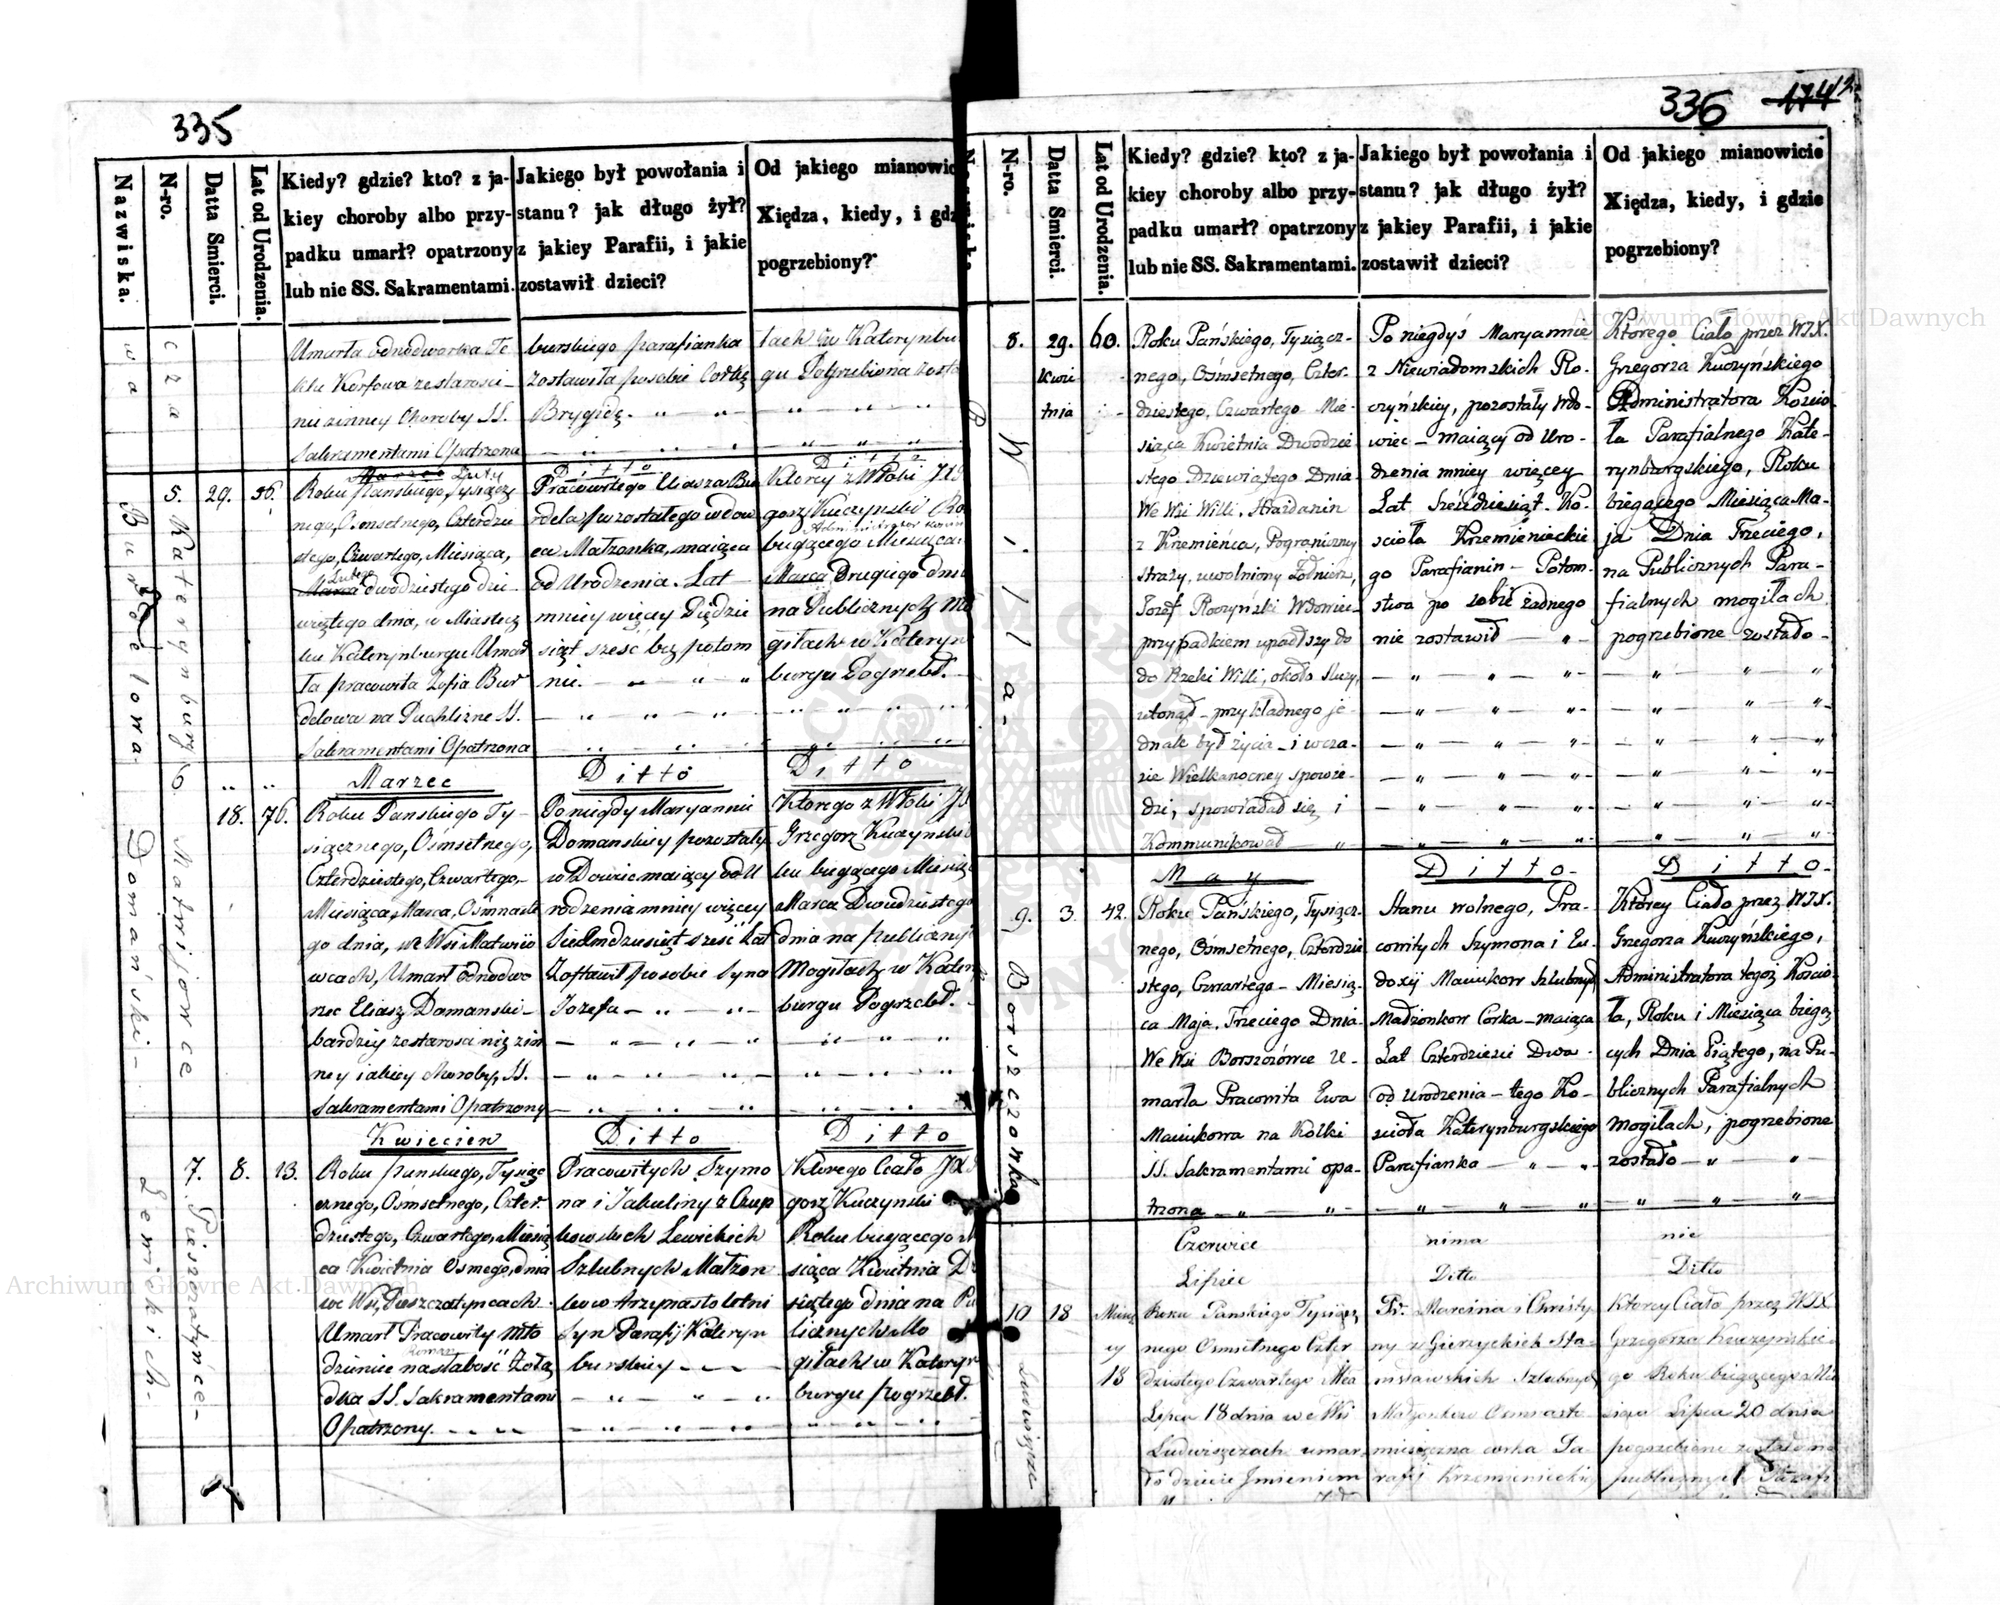 335
Nazwiska.
N-ro.
Datta Smierci.
Lat od Urodzenia.
Kiedy? gdzie? kto? z ja-
kiey choroby albo przy-
padku umarł? opatrzony
lub nie SS. Sakramentami.
Jakiego był powołania i
stanu? jak długo żył?
z jakiey Parafii, i jakie
zostawił dzieci?
Od jakiego mianowic
Xiędza, kiedy, i gdz
pogrzebiony?
Umarła odnodworka Te
kla Korfowa ze starości
nie zinney Choroby SS.
Sakramentami Opatrzona
burskiego parafianka
Zostawiła po sobie Corkę
Brygidę.
łach w Katerynbu
gu Pogrzebiona zosta
5.
Katerynburg
Burdelowa
29.
56.
Marzec Luty
Roku Panskiego, Tysiącz
nego, Osmsetnego, Czterdzie
stego, Czwartego, Miesiąca,
Lutego
Marca dwudziestego dzie
wiątego dnia, w Miastecz
ku Katerynburgu Umar
ła pracowita Zofia Bur
delowa na Puchlizne SS.
Sakramentami Opatrzona
Ditto
Pracowitego Eliasza Bu
rdela pozostałego wdow
ca Małzonka, maiąca
od Urodzenia. Lat
mniey więcey Pięćdzie
siąt sześć bez potom
nie.
Ditto
Ktorey zWłoki JXG
gorz Kuczynski Ro
bieżącego Miesiąca
Marca Drugiego dnia
na Publicznych Mo
giłach w Kateryn
burgu Pogrzebł.
6
Matwijowce
Domański-
18.
76.
Marzec
Roku Panskiego Ty-
siącznego, Osmsetnego,
Czterdziestego, Czwartego,
Miesiąca, Marca, Osmnaste
go dnia, we Wsi Matwiio
wcach, Umarł odnodwo
rzec Eliasz Domanski-
bardziey ze starosci niż zin
ney iakiey choroby, SS.
Sakramentami Opatrzony
Ditto
Po niegdy Maryannie
Domanskiey pozostały
wDowiec maiący od U
rodzenia mniey więcey
Siedmdziesiąt sześć Lat
Zostawił po sobie Syna
Jozefa
Ditto
Ktorego zWłoki JX
Grzegorz Kuczynski
ku bieżącego Miesiąc
Marca Dwudziestego
dnia na publiczny
Mogiłach w Katery
burgu Pogrzebł.
7.
Pieszczatyńce-
Lewickich-
8.
13.
Kwiecien
Roku Panskiego, Tysiąc
cznego, Osmsetnego, Czter
dziestego, Czwartego, Miesią
ca Kwietnia Osmego, dnia
we Wsi, Pieszczatyncach
Umarł Pracowity Mło
dzieniec na słabość Żołą
Roman
dka SS. Sakramentami
Opatrzony.
Ditto
Pracowitych Szymo
na i Jakuliny z Czup
kowskich Lewickich
Szlubnych Małzon
kow trzynastoletni
Syn Parafij Kateryn
burskiey
Ditto
Ktorego Ciało JXG
gorz Kuczynski
Roku bieżącego
siąca Kwietnia D
siątego dnia na Pu
licznych Mo
giłach w Kateryn
burgu pogrzebł.
336
174
N-ro.
Datta Smierci.
Lat od Urodzenia.
Kiedy? gdzie? kto? z ja-
kiey choroby albo przy-
padku umarł? opatrzony
lub nie SS. Sakramentami.
Jakiego był powołania i
stanu? jak długo żył?
z jakiey Parafii, i jakie
zostawił dzieci?
Od jakiego mianowicie
Xiędza, kiedy, i gdzie
pogrzebiony?
8.
Willa-
29.
Kwie
tnia
60.
Roku Pańskiego, Tysiącz-
nego, Ośmsetnego, Czter-
dziestego, Czwartego Mie-
siąca Kwietnia Dwodzie
stego Dziewiątego Dnia
We Wsi Willi, Strażdanin
z Krzemieńca, Pograniczney
straży, uwolniony Żołnierz,
Jozef Roczyński Wdowiec
przypadkiem upadłszy do
do Rzeki Willi, około sluzy,
utonął - przykładnego je
dnak był życia - i wcza-
sie Wielkanocney spowie-
dzi, spowiadał się, i
Kommunikował
Po niegdyś Maryannie
z Niewiadomskich Ro-
czyńskiey, pozostały wdo-
wiec - maiący od Uro-
dzenia mniey więcey
Lat Sześćdziesiąt. Ko-
scioła Krzemienieckie
go Parafianin - Potom-
stwa po sobie żadnego
nie zostawił
Ktorego Ciało przez WJX.
Grzegorza Kuczyńskiego
Administratora Kościo-
ła Parafialnego Kate-
rynburgskiego, Roku
bieżącego Miesiąca Ma-
ja Dnia Trzeciego,
na Publicznych Para-
fialnych mogiłach
pogrzebione zostało-
9.
Borszczowka
3.
42.
May
Roku Pańskiego, Tysiącz-
nego, Ośmsetnego, Czterdzie
stego, Czwartego - Miesią-
ca Maja, Trzeciego Dnia
We Wsi Borszczówce U-
marła Pracowita Ewa
Maciukowa na Kolki
SS. Sakramentami opa-
trzona
Ditto-
Stanu wolnego, Pra-
cowitych Szymona i Eu-
doxij Maciukow Szlubnych
Madzionkow Corka - maiąca
Lat Czterdzieści Dwa
od Urodzenia - tego Ko-
scioła Katerynburgskiego
Parafianka
Ditto-
Ktorey Ciało przez WJX.
Grzegorza Kuczyńskiego,
Administratora tegoż Kościo-
ła, Roku i Miesiąca bieżą
cych Dnia Piątego, na Pu-
blicznych Parafialnych
mogiłach, pogrzebione
zostało
Czerwiec
nima
nie
Lipiec
Ditto
Ditto
10
18
Miesię
cy
18
Roku Panskiego Tysiącz
nego Osmsetnego Czter
dziestego Czwartego Mca
Lipca 18 dnia we Wsi
Ludwiszczach umar
ło dziecie Imieniem
Pr. Marcina i Chrysty
ny z Gierzyckich Sta-
nisławskich Szlubnych
Madzonkow Osmnasto
miesięczna corka Pa
rafij Krzemienieckiey
Ktorey Ciało przez WJX
Grzegorza Kuczyńskie
go Roku bieżącego Mie
siąca Lipca 20 dnia
pogrzebione zostało na
publicznych Parafi
Archiwum Główne Akt Dawnych
Archiwum Główne Akt Dawnych